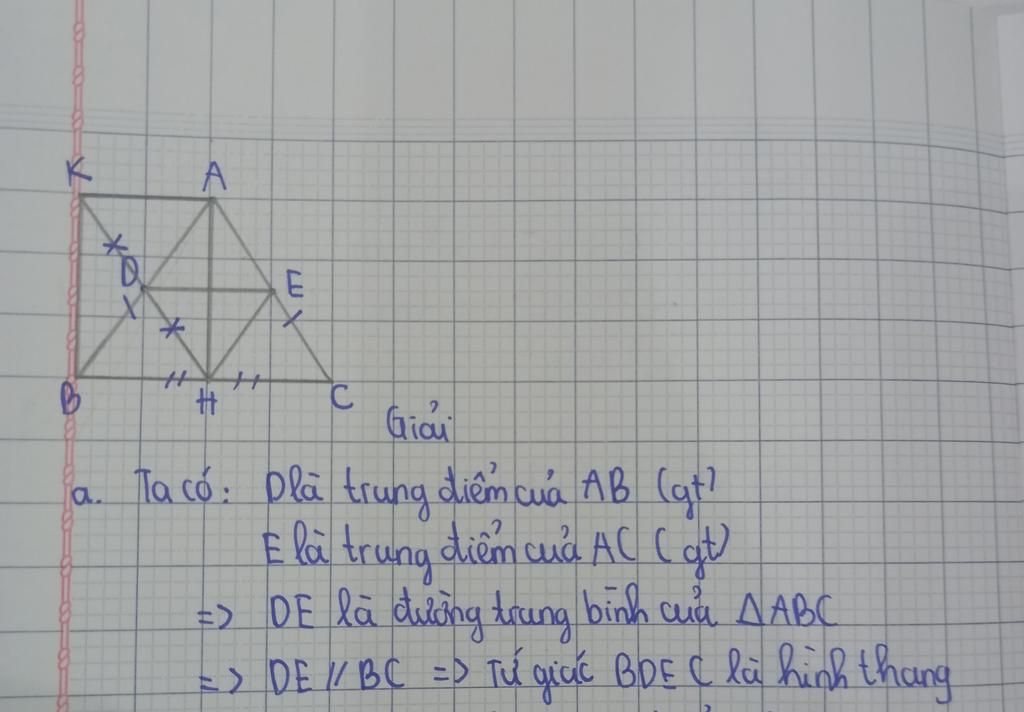 K A
D E
B H C
Giải
a. Ta có: D là trung điểm của AB (gt)
E là trung điểm của AC (gt)
=> DE là đường trung bình của ΔABC
=> DE // BC => Tứ giác BDEC là hình thang